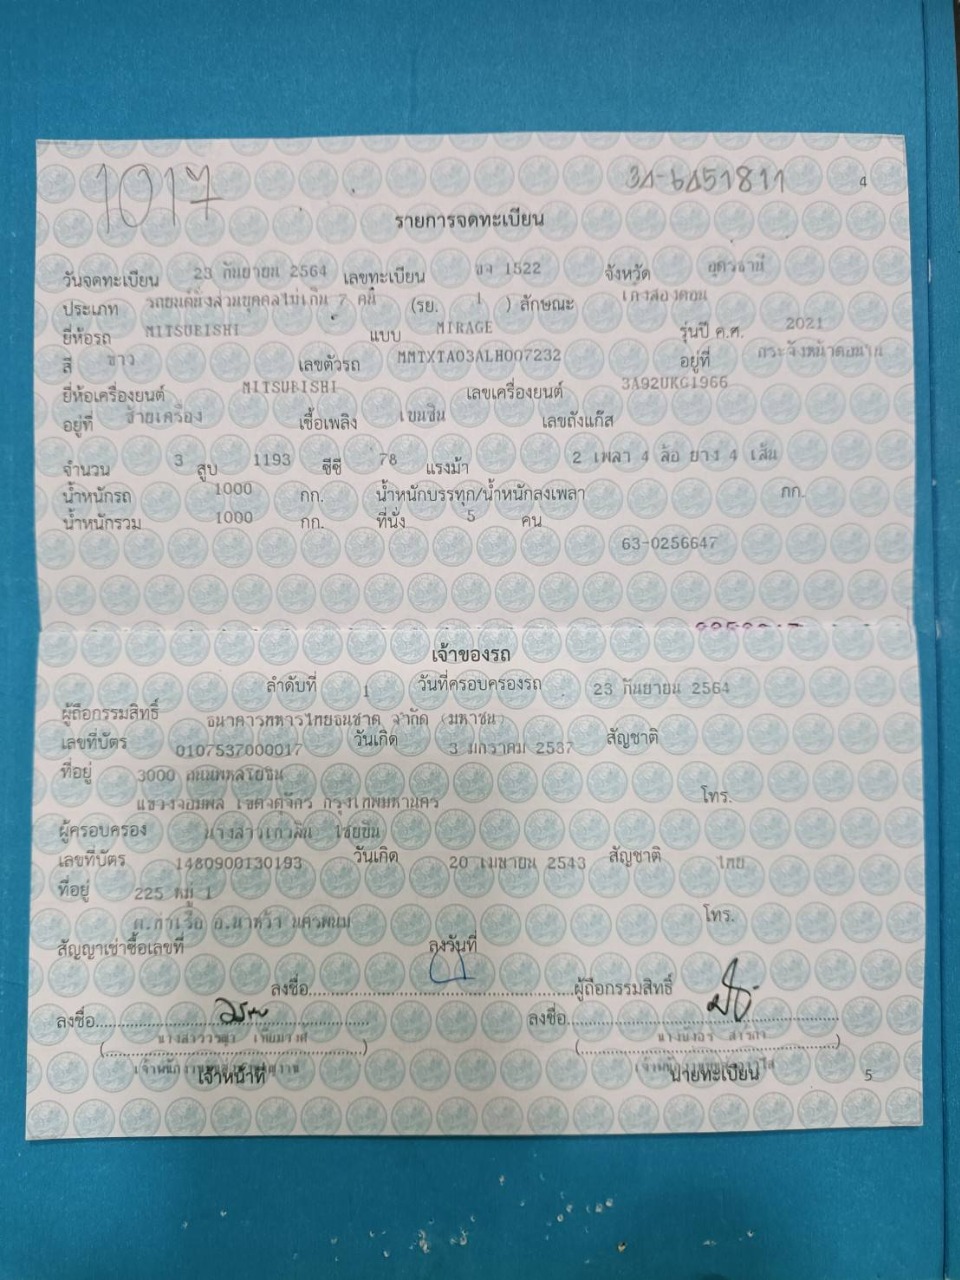 1017 4
รายการจดทะเบียน
วันจดทะเบียน 23 กันยายน 2564 เลขทะเบียน ขจ 1522 จังหวัด อุดรธานี
ประเภท รถยนต์นั่งส่วนบุคคลไม่เกิน 7 คน (รย. 1 ) ลักษณะ เก๋งสองตอน
ยี่ห้อรถ MITSUBISHI แบบ MIRAGE รุ่นปี ค.ศ. 2021
สี ขาว เลขตัวรถ MMTXTA03ALH007232 อยู่ที่
ยี่ห้อเครื่องยนต์ MITSUBISHI เลขเครื่องยนต์ 3A92UKG1966
อยู่ที่ ซ้ายเครื่อง เชื้อเพลิง เบนซิน เลขถังแก๊ส
จำนวน 3 สูบ 1193 ซีซี 78 แรงม้า 2 เพลา 4 ล้อ ยาง 4 เส้น
น้ำหนักรถ 1000 กก. น้ำหนักบรรทุก/น้ำหนักลงเพลา กก.
น้ำหนักรวม 1000 กก. ที่นั่ง 5 คน
63-0256647
เจ้าของรถ
ลำดับที่ 1 วันที่ครอบครองรถ 23 กันยายน 2564
ผู้ถือกรรมสิทธิ์ ธนาคารทหารไทยธนชาต จำกัด (มหาชน)
เลขที่บัตร 0107537000017 วันเกิด 3 มกราคม 2537 สัญชาติ
ที่อยู่ 3000 ถนนพหลโยธิน
แขวงจอมพล เขตจตุจักร กรุงเทพมหานคร โทร.
ผู้ครอบครอง นางสาวเกวลิน ไชยขืน
เลขที่บัตร 1480900130193 วันเกิด 20 เมษายน 2543 สัญชาติ ไทย
ที่อยู่ 225 หมู่ 1
ต.ท่าเรือ อ.นาหว้า นครพนม โทร.
สัญญาเช่าซื้อเลขที่ ลงวันที่
ลงชื่อ ผู้ถือกรรมสิทธิ์
ลงชื่อ ลงชื่อ
เจ้าหน้าที่ นายทะเบียน 5